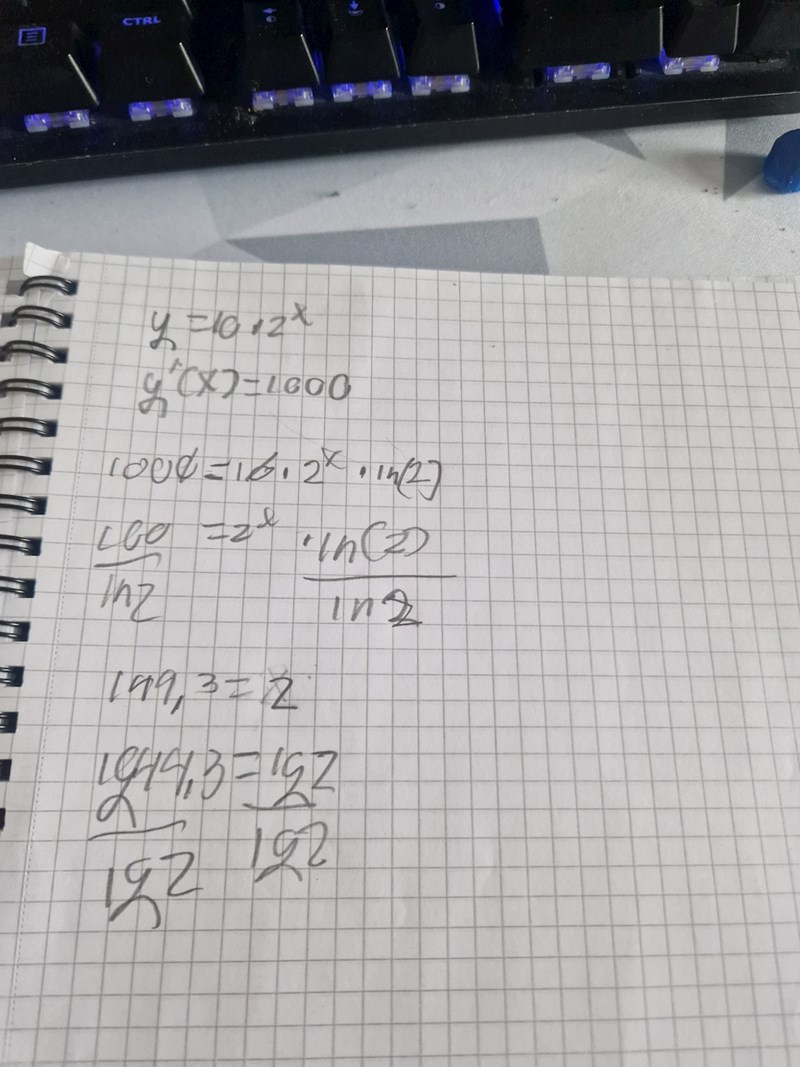 CTRL
y = 10 · 2^x
y'(x) = 1000
1000 = 10 · 2^x · ln(2)
100/ln2 = 2^x · ln(2)/ln2
149,3 = 2
lg 44,3/lg2 = lg2/lg2